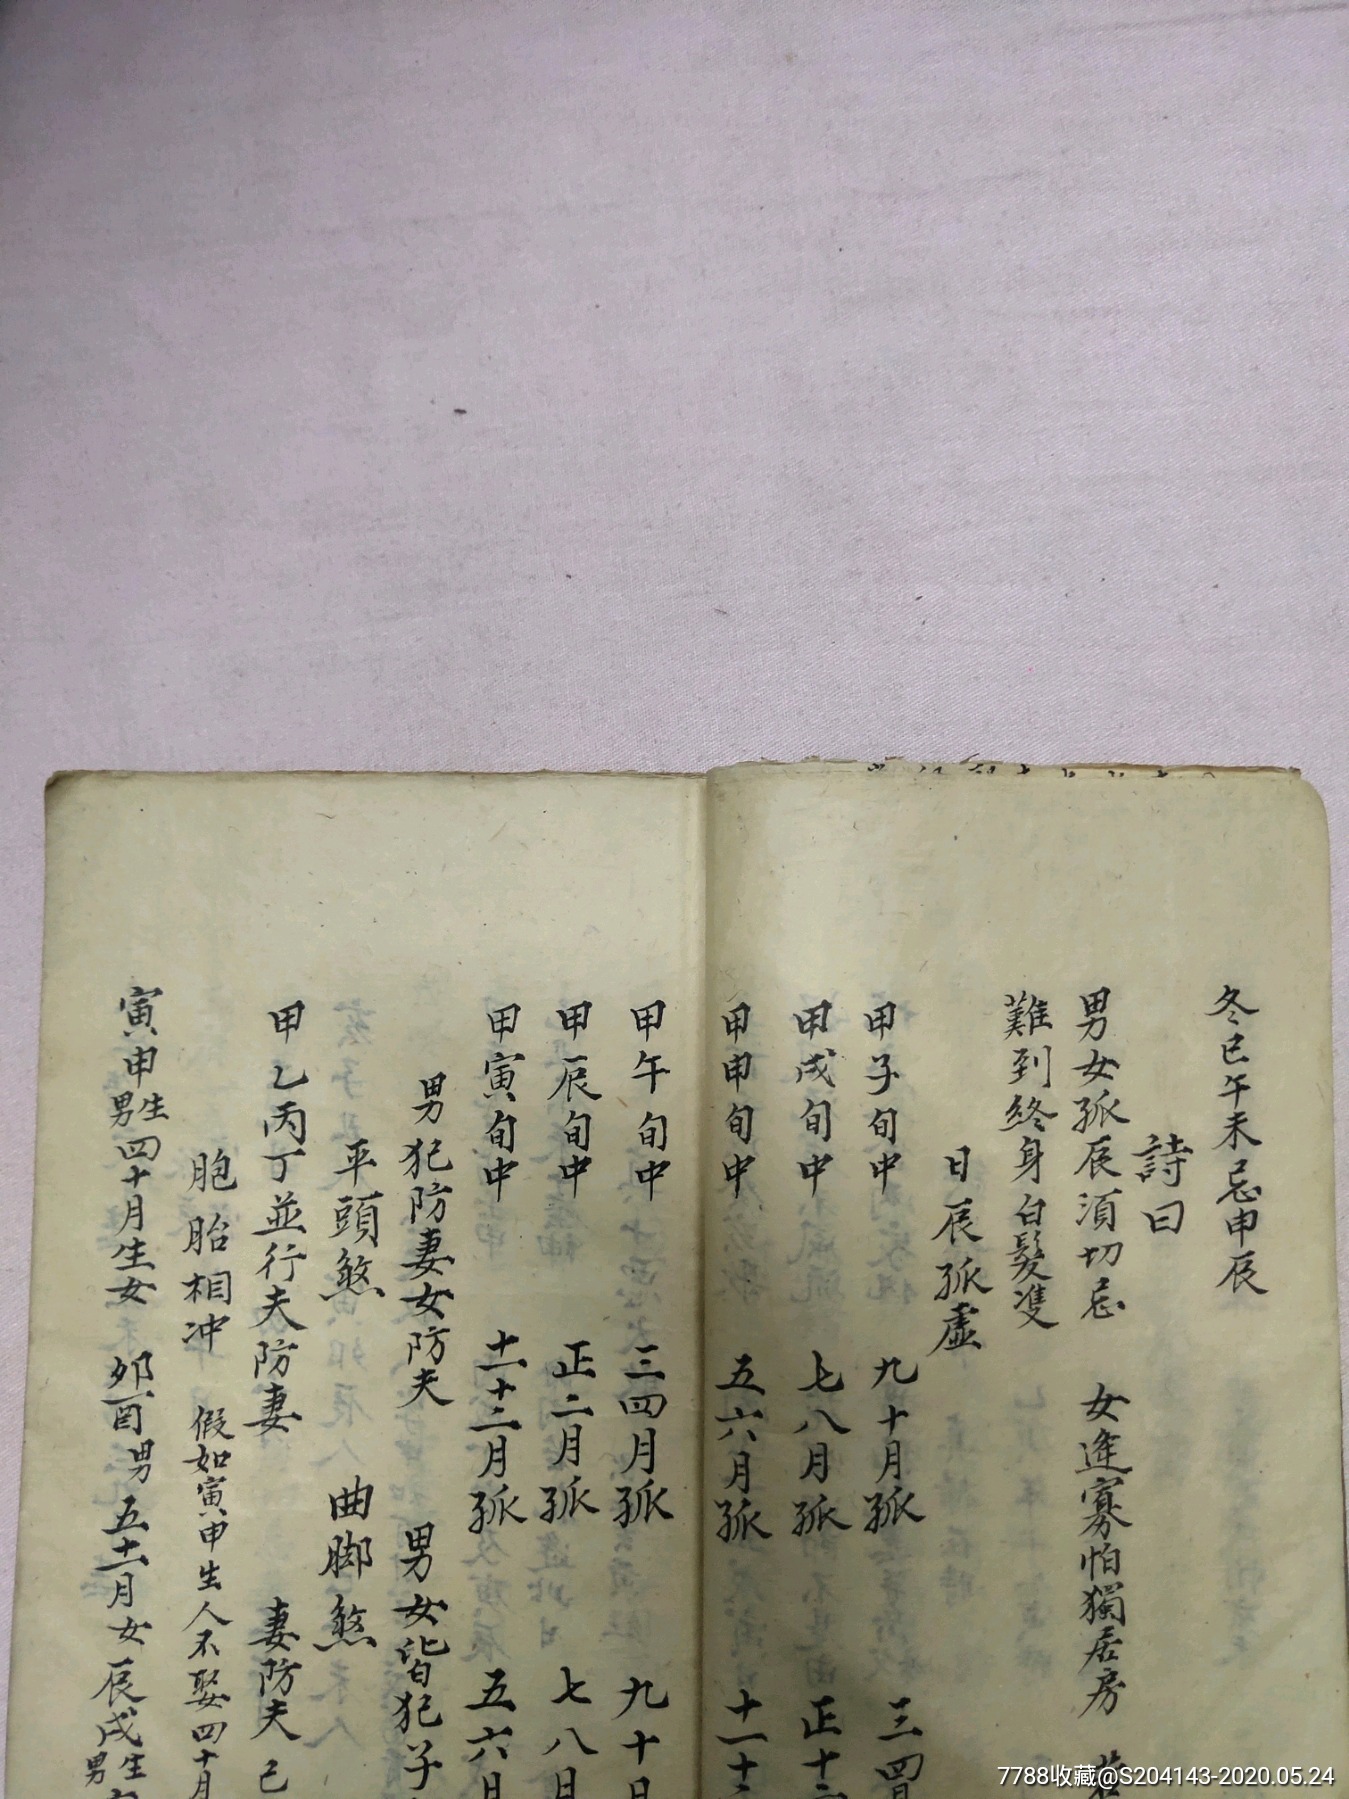 冬巳午未忌申辰
詩曰
男女孤辰須切忌　女逢寡怕獨居房
難到終身白髮㕠
日辰孤虛
甲子旬中　九十月孤　三四月
甲戌旬中　七八月孤　正十二
甲申旬中　五六月孤　十一十二
甲午旬中　三四月孤　九十日
甲辰旬中　正二月孤　七八月
甲寅旬中　十一十二月孤　五六月
男犯防妻女防夫　男女皆犯子
平頭煞　曲脚煞
甲乙丙丁並行夫防妻　妻防夫己
胞胎相冲　假如寅申生人不娶四十月
寅申生男四十月生女　夘酉男五十一月女辰戌生男
7788收藏@S204143-2020.05.24